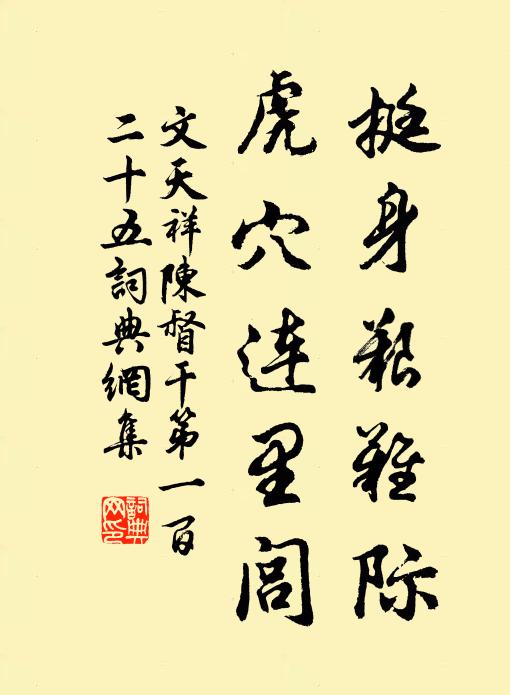 挺身艱難际
虎穴連里閭
文天祥陳督干第一百
二十五詞典網集
詞典
网印